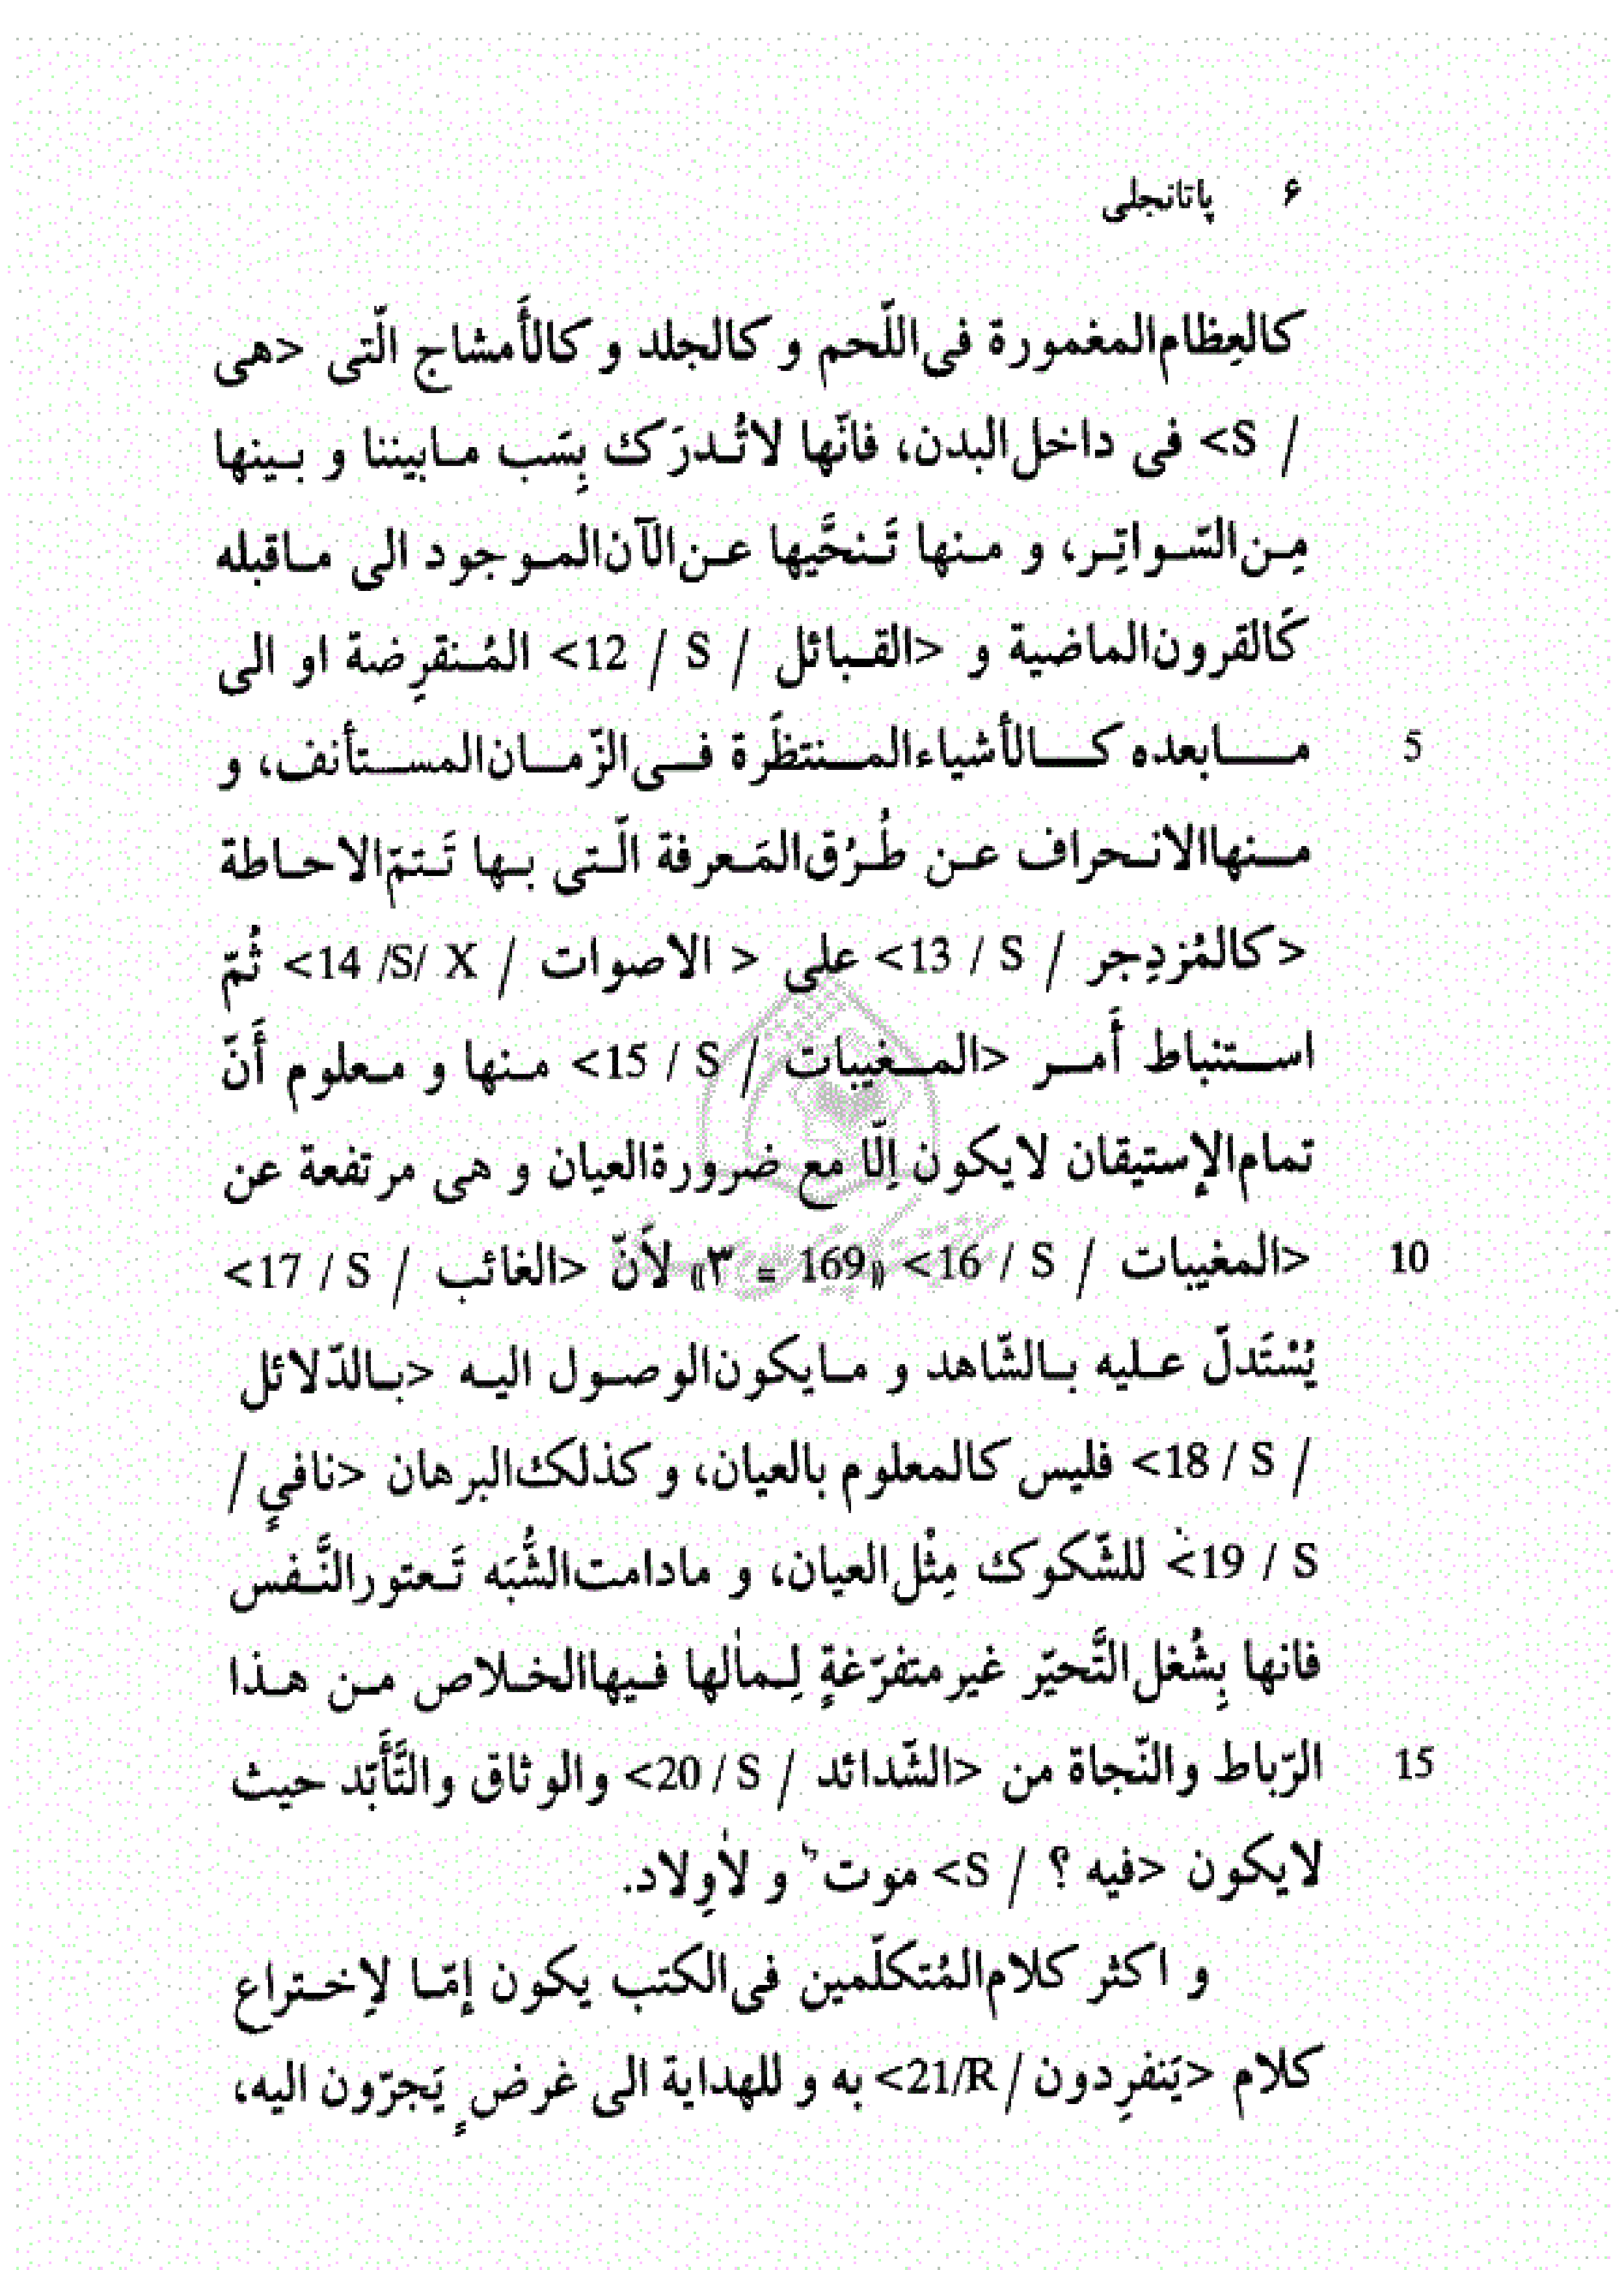 ۶ پاتانجلی
کالعِظام‌المغمورة فی‌اللّحم و کالجلد و کالأَمشاج الّتی <هی
/ S> فی داخل‌البدن، فانّها لاتُدرَک بِسَب مابیننا و بینها
مِن‌السّواتِر، و منها تَنحَّیها عن‌الآن‌الموجود الی ماقبله
کَالقرون‌الماضیة و <القبائل / S / 12> المُنقرِضة او الی
5 مابعده کالأشیاءالمنتظَرة فی‌الزّمان‌المستأنف، و
منهاالانحراف عن طُرُق‌المَعرفة الّتی بها تَتمّ‌الاحاطة
<کالمُزدِجر / S / 13> علی < الاصوات / S/ X/ 14> ثُمّ
استنباط أَمر <المغیبات / S / 15> منها و معلوم أَنّ
تمام‌الإستیقان لایکون اِلّا مع ضرورةالعیان و هی مرتفعة عن
10 <المغیبات / S / 16> «169 = ۳» لأَنّ <الغائب / S / 17>
یُسْتَدلّ علیه بالشّاهد و مایکون‌الوصول الیه <بالدّلائل
/ S / 18> فلیس کالمعلوم بالعیان، و کذلک‌البرهان <نافیٍ /
S / 19> للشّکوک مِثْل‌العیان، و مادامت‌الشُّبَه تَعتورالنَّفس
فانها بِشُغل‌التَّحیّر غیرمتفرّغةٍ لِمالها فیهاالخلاص من هذا
15 الرّباط والنّجاة من <الشّدائد / S / 20> والوثاق والتَّأَبّد حیث
لایکون <فیه ؟ / S> موتٌ و لاوِلاد.
و اکثر کلام‌المُتکلّمین فی‌الکتب یکون إمّا لإختراع
کلام <یَنفرِدون / R/21> به و للهدایة الی غرضٍ یَجرّون الیه،